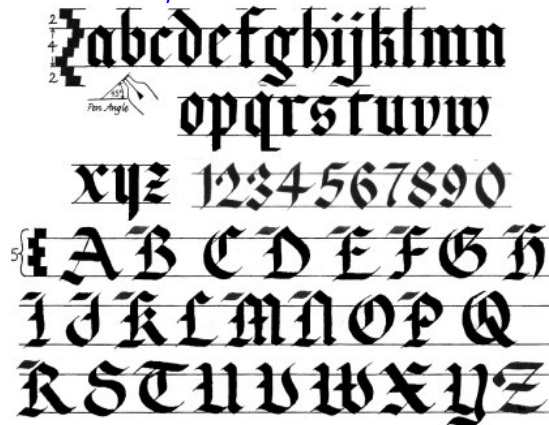 2
4
2
abcdefghijklmn
45°
Pen Angle
opqrstuvw
xyz 1234567890
5 ABCDEFGH
IJKLMNOPQ
RSTUVWXYZ